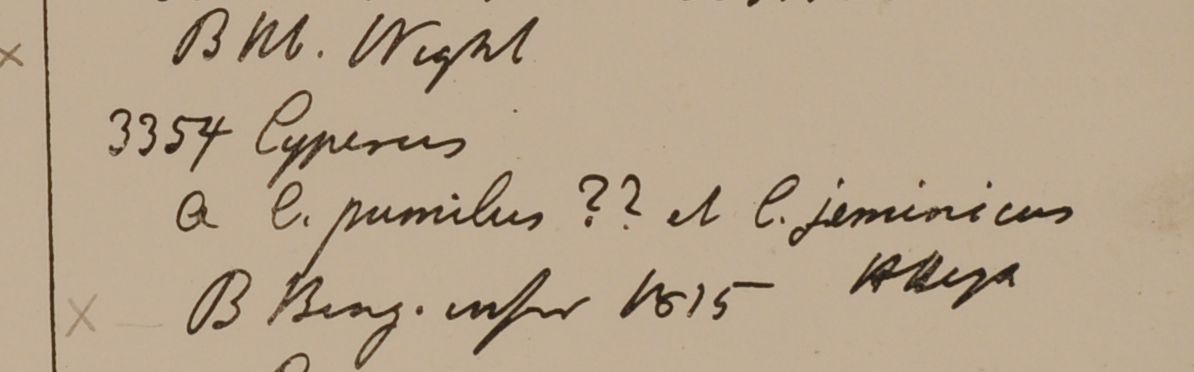 B Hb. Wight
3354 Cyperus
a C. pumilus ?? et C. jeminicus
B Beng. infer 1815